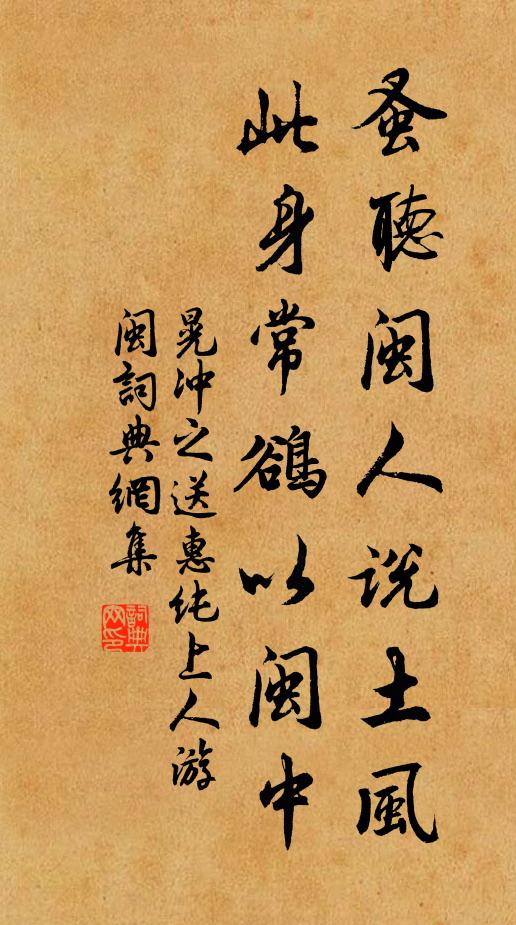 蚤聽閩人說土風
此身常鵒以閩中
晁冲之送惠純上人游
閩詞典網集
詞典
网印